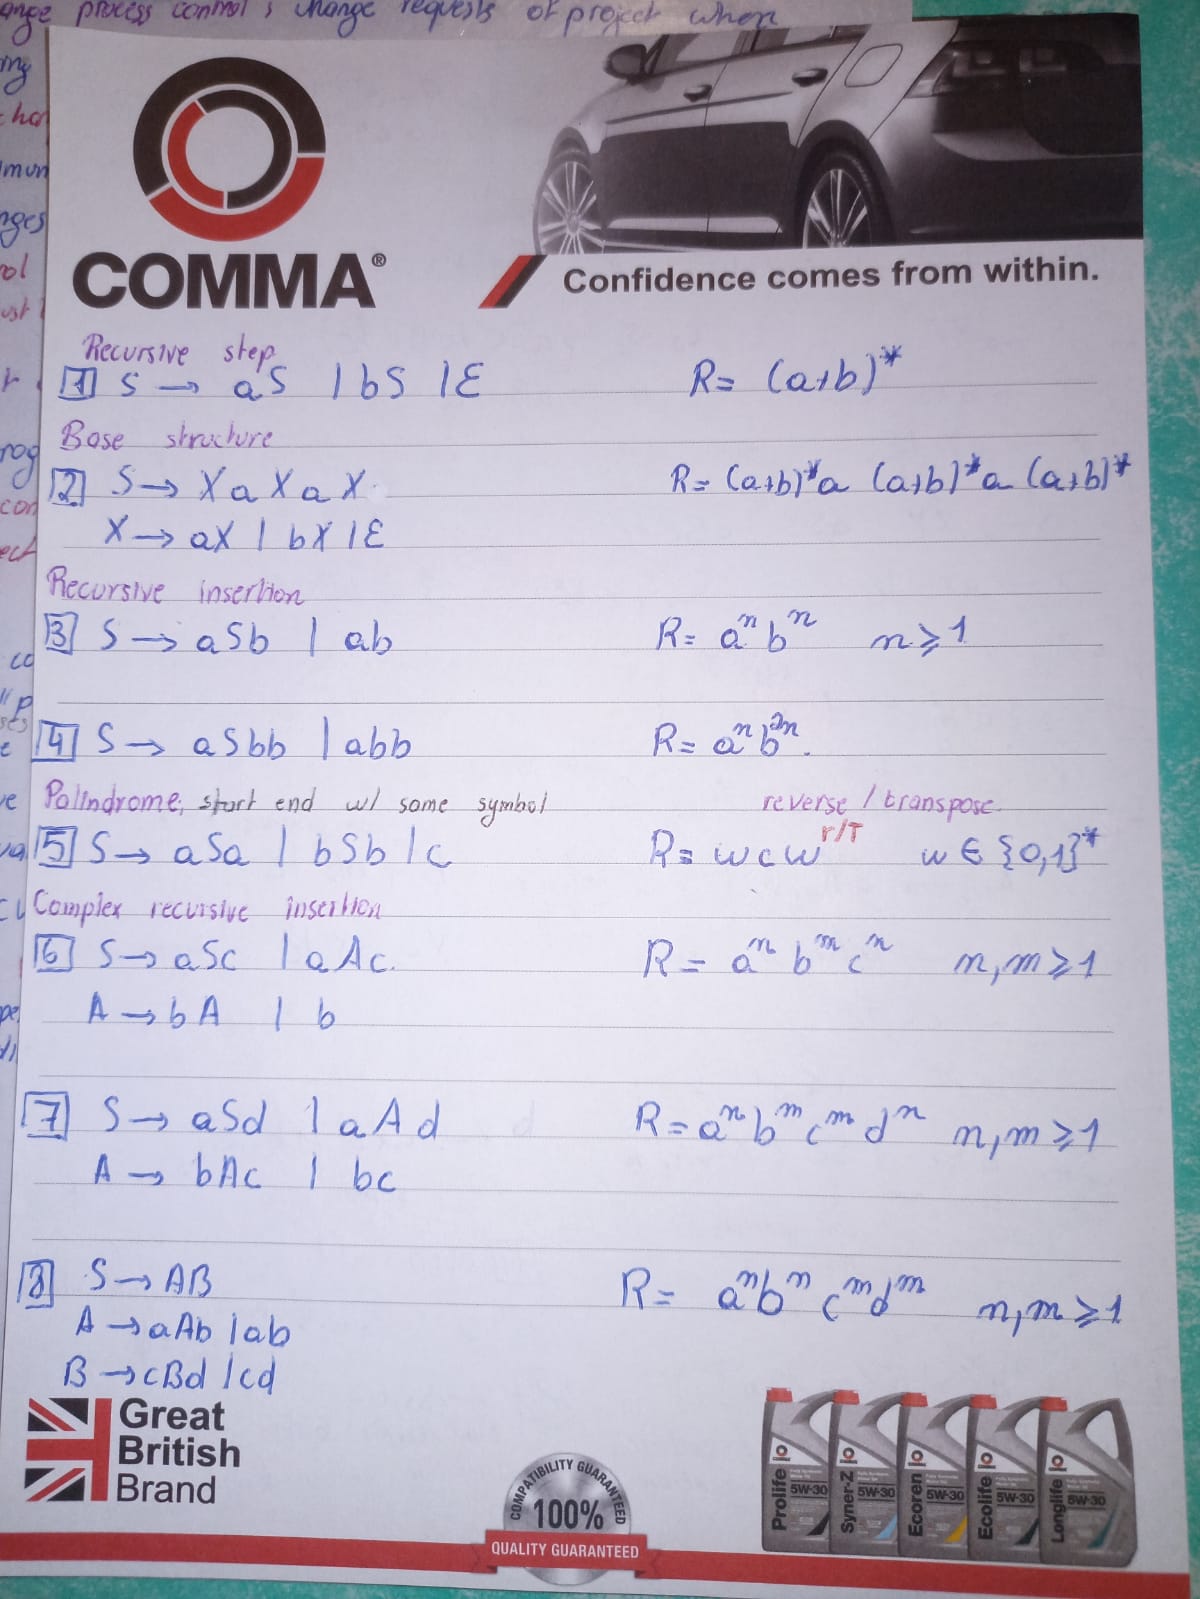 ange process control; change requests of project when
my
COMMA®
Confidence comes from within.
Recursive step
1 S → aS | bS | ε R = (a+b)*
Base structure
2 S → XaXaX R = (a+b)*a (a+b)*a (a+b)*
X → aX | bX | ε
Recursive insertion
3 S → aSb | ab R = aⁿ bⁿ n ≥ 1
4 S → aSbb | abb R = aⁿ b²ⁿ.
Palindrome, start end w/ some symbol reverse / transpose
5 S → aSa | bSb | c R = wcw^r/T w ∈ {0,1}*
Complex recursive insertion
6 S → aSc | aAc. R = aⁿ bᵐ cⁿ n, m ≥ 1
A → bA | b
7 S → aSd | aAd R = aⁿ bᵐ cᵐ dⁿ n, m ≥ 1
A → bAc | bc
8 S → AB R = aⁿ bⁿ cᵐ dᵐ n, m ≥ 1
A → aAb | ab
B → cBd | cd
Great
British
Brand
COMPATIBILITY GUARANTEED
100%
QUALITY GUARANTEED
Prolife 5W-30
Syner-Z 5W-30
Ecoren 5W-30
Ecolife 5W-30
Longlife 5W-30